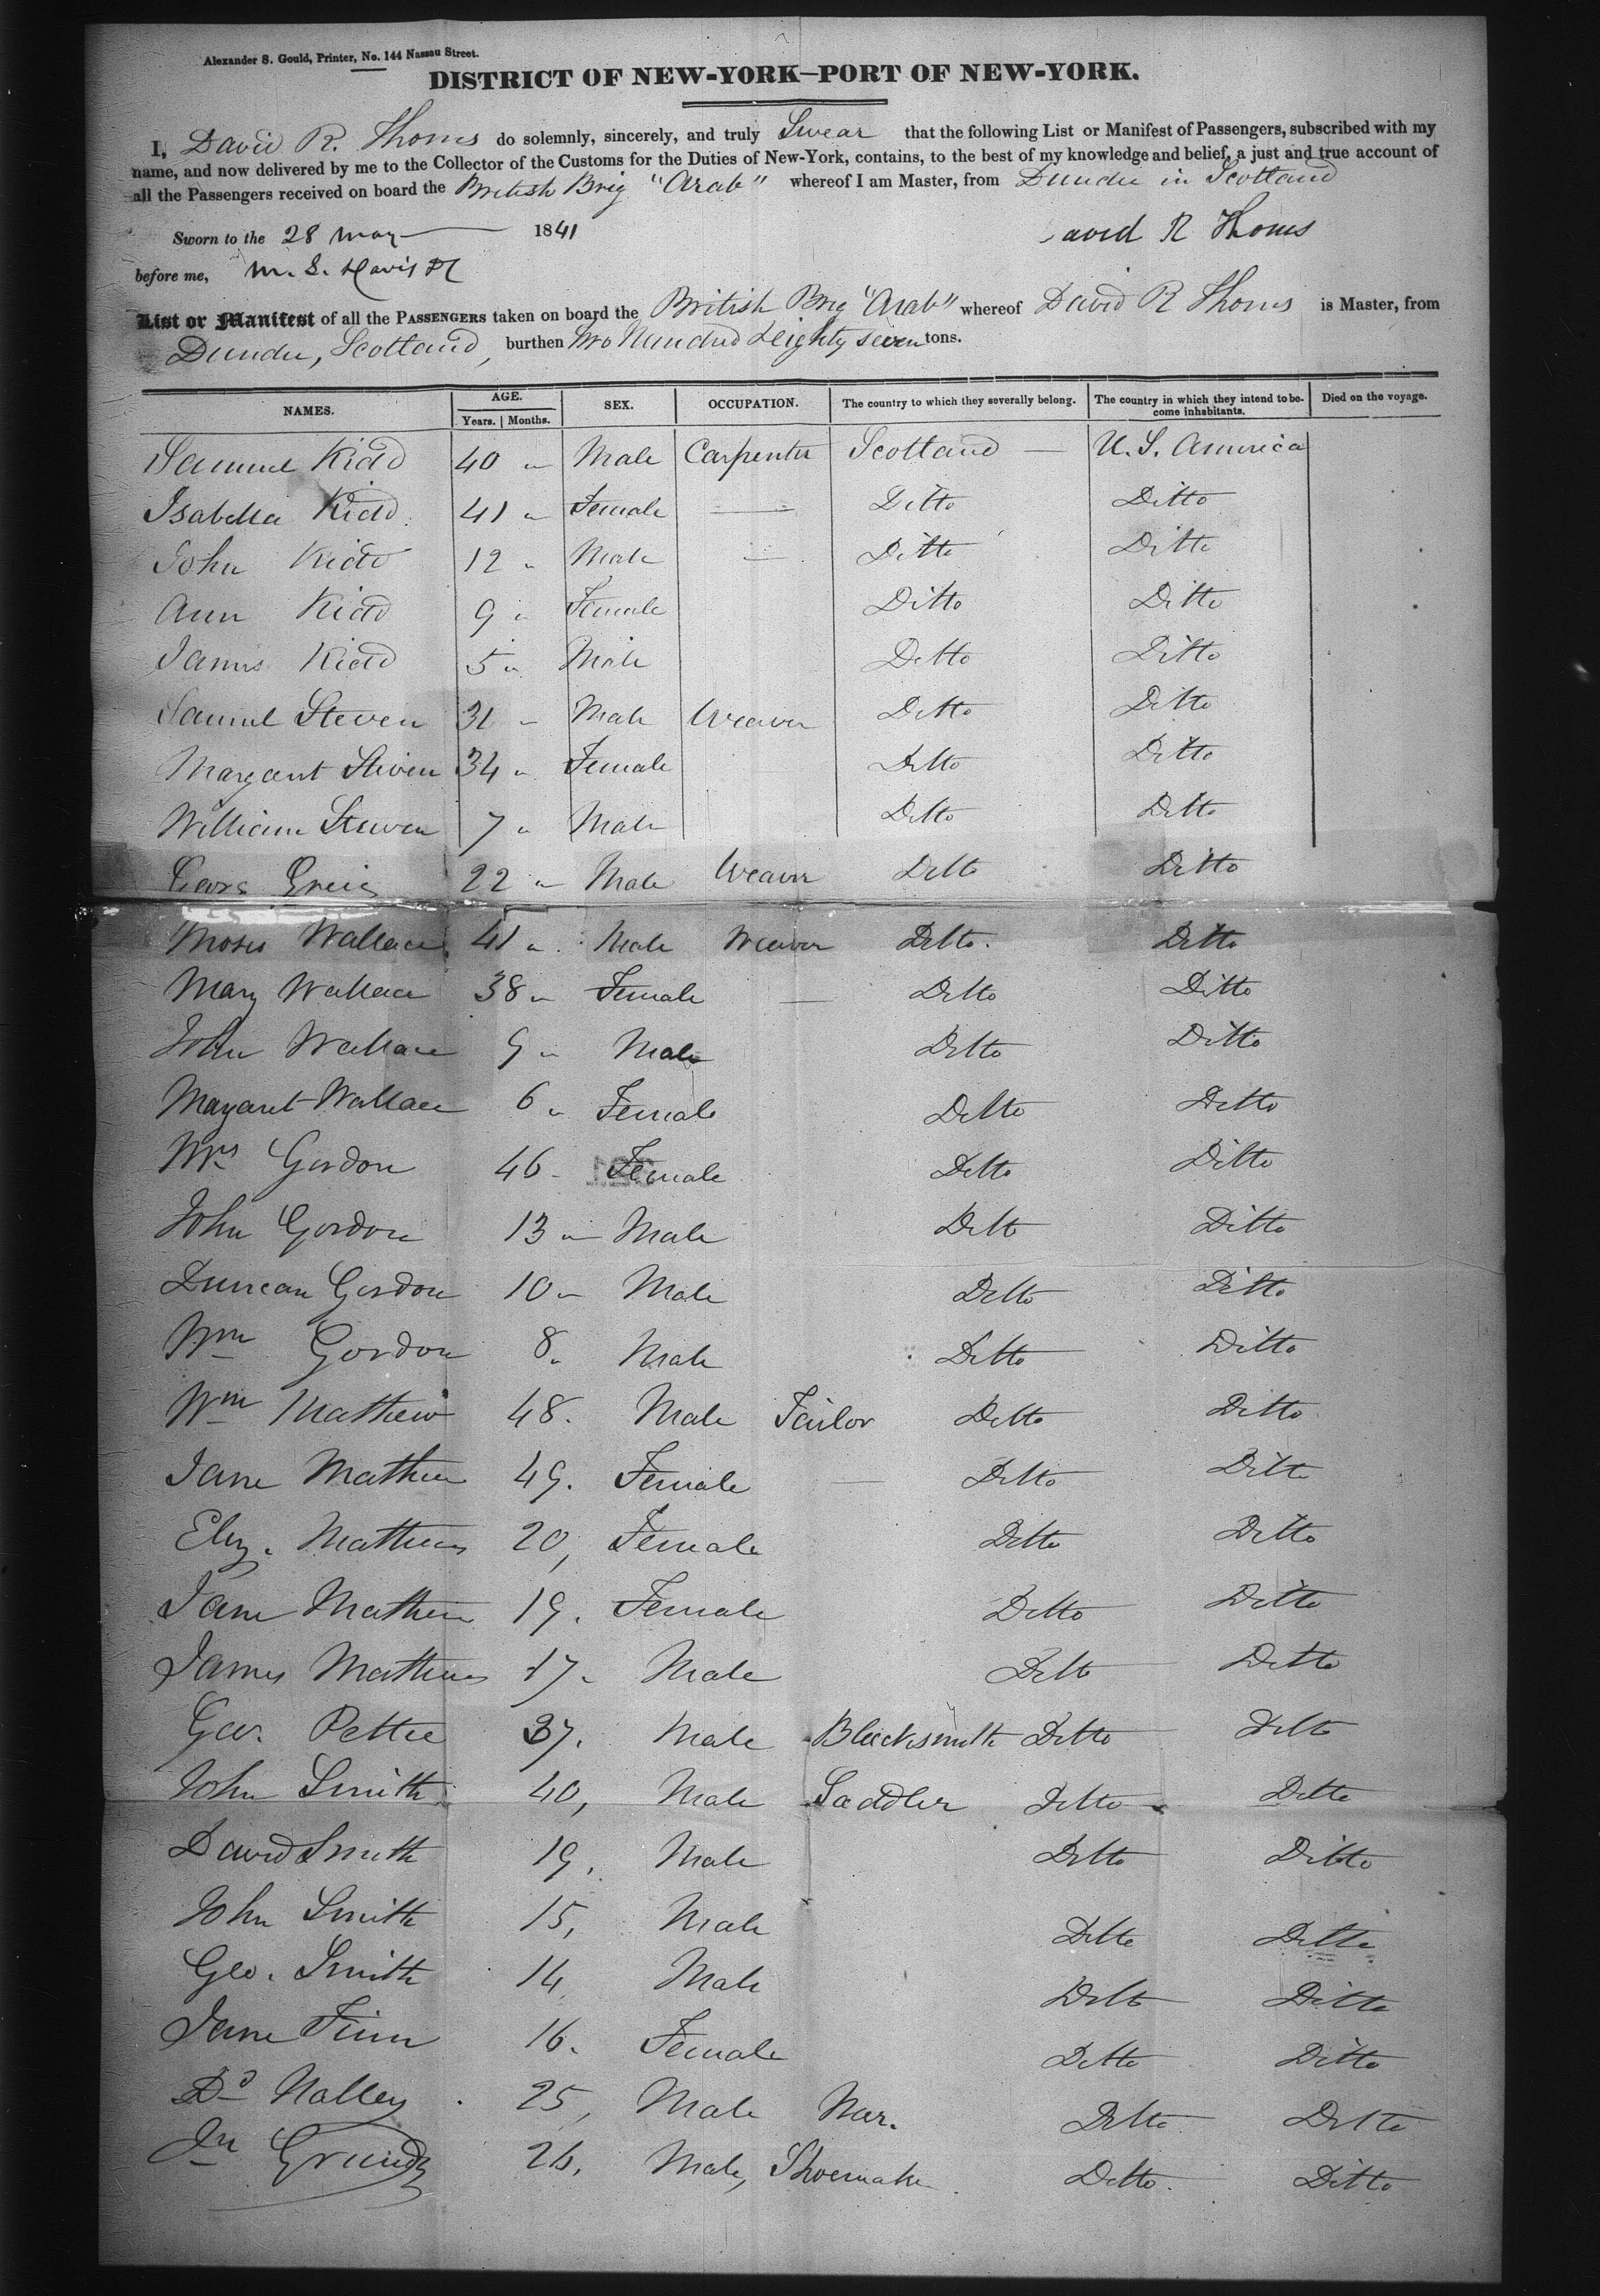 Alexander S. Gould, Printer, No. 144 Nassau Street.
DISTRICT OF NEW-YORK—PORT OF NEW-YORK.
I, David R. Thoms do solemnly, sincerely, and truly Swear that the following List or Manifest of Passengers, subscribed with my
name, and now delivered by me to the Collector of the Customs for the Duties of New-York, contains, to the best of my knowledge and belief, a just and true account of
all the Passengers received on board the British Brig "Arab" whereof I am Master, from Dundee in Scotland
Sworn to the 28 May 1841 David R Thoms
before me, M. S. Davis
List or Manifest of all the PASSENGERS taken on board the British Brig "Arab" whereof David R Thoms is Master, from
Dundee, Scotland, burthen Two Hundred & eighty seven tons.
NAMES. AGE. Years. Months. SEX. OCCUPATION. The country to which they severally belong. The country in which they intend to become inhabitants. Died on the voyage.
Samuel Kidd 40 " Male Carpenter Scotland — U. S. America
Isabella Kidd 41 " Female — Ditto Ditto
John Kidd 12 " Male — Ditto Ditto
Ann Kidd 9 " Female Ditto Ditto
James Kidd 5 " Male Ditto Ditto
Samuel Steven 31 " Male Weaver Ditto Ditto
Margaret Steven 34 " Female Ditto Ditto
William Steven 7 " Male Ditto Ditto
Greig 22 " Male Weaver Ditto Ditto
Moses Wallace 41 " Male Weaver Ditto Ditto
Mary Wallace 38 " Female — Ditto Ditto
John Wallace 9 " Male Ditto Ditto
Margaret Wallace 6 " Female Ditto Ditto
Mrs Gordon 46 - Female Ditto Ditto
John Gordon 13 " Male Ditto Ditto
Duncan Gordon 10 " Male Ditto Ditto
Wm Gordon 8 " Male Ditto Ditto
Wm Mathew 48 . Male Tailor Ditto Ditto
Jane Mathew 49 . Female — Ditto Ditto
Eliz. Mathew 20 , Female Ditto Ditto
Jane Mathew 19 . Female Ditto Ditto
James Mathew 17 " Male Ditto Ditto
Geo. Pettie 37 . Male Blacksmith Ditto Ditto
John Smith 40 , Male Saddler Ditto Ditto
David Smith 19 , Male Ditto Ditto
John Smith 15 , Male Ditto Ditto
Geo. Smith 14 Male Ditto Ditto
Jane Finn 16 . Female Ditto Ditto
Dd Nalley 25 , Male Ditto Ditto
Jn 26 , Male, Shoemaker Ditto Ditto